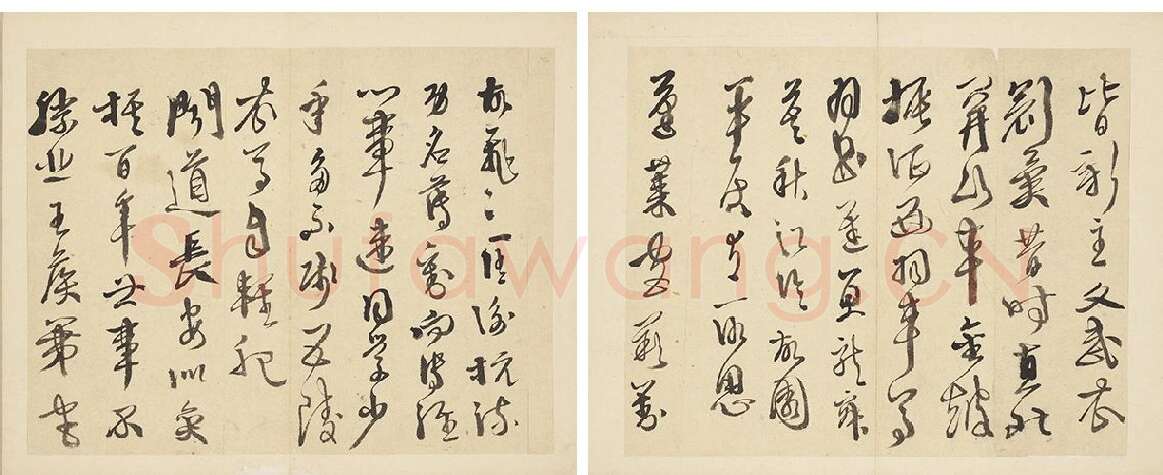 故飛〻匡衡抗疏
功名薄劉向傳經
心事違同學少
年多不賤五陵
衣馬自輕肥
聞道長安似奕
棋百年世事不
勝悲王侯第宅
皆新主文武衣
冠異昔時直北
關山車金鼓
振征西羽車馬
羽書遲魚龍寂
寞秋江冷故國
平居有所思
蓬萊宮闕對
Shufawang.CN